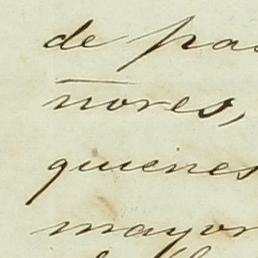 de pa
nores,
quienes
mayor